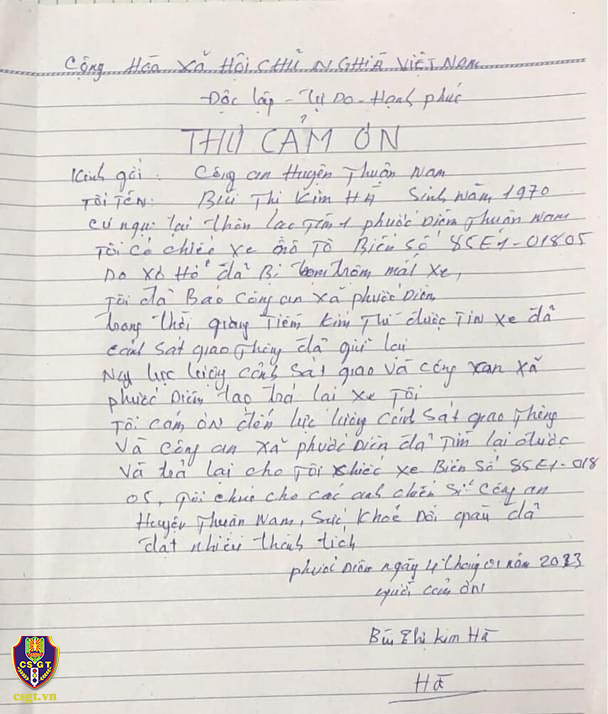 Cộng Hòa Xã Hội Chủ Nghĩa Việt Nam
Độc lập - Tự Do - Hạnh phúc
THƯ CẢM ƠN
Kính gởi: Công an Huyện Thuận Nam
Tôi Tên: Bùi Thị Kim Hà Sinh Năm 1970
cư ngụ tại thôn lạc Tiến 1 phước Diêm Thuận Nam
Tôi có chiếc xe Biển Số 85E1-01805
Do xơ Hở đã Bị trộm mất xe,
Tôi đã Báo công an xã phước Diêm
trong thời Tiềm Kim Thì được Tin xe đã
cảnh sát giao thông đã giữ lại
Nay lực lượng cảnh sát giao và công an xã
phước Diêm trả lại xe Tôi
Tôi cám ơn đến lực lượng cảnh sát giao thông
Và công an xã phước Diêm đã Tìm lại được
Và trả lại cho Tôi chiếc xe Biển Số 85E1-018
05, Tôi chúc cho các anh chiến Sĩ công an
Huyện Thuận Nam, Sức Khoẻ Dồi
đạt nhiều thành tích
phước Diêm ngày 4 tháng 01 năm 2023
người cám ơn
Bùi thị Kim Hà
Hà
CSGT
csgt.vn